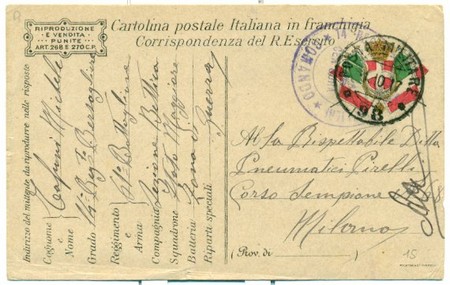 RIPRODUZIONE
E VENDITA
PUNITE
ART. 268 E 270 C.P.
Cartolina postale Italiana in franchigia
Corrispondenza del R. Esercito
Indirizzo del mittente da riprodurre nelle risposte
Cognome
e
Nome
Michele
Grado
14° Regg.to Bersaglieri
Reggimento
e
Arma
Battaglione
Compagnia
Squadrone
Stato Maggiore
Batteria
Zona
Guerra
Riparti speciali
COMANDO
98
Alla Rispettabile Ditta
Pneumatici Pirelli
Corso Sempione
Milano
(Prov. di
)
15